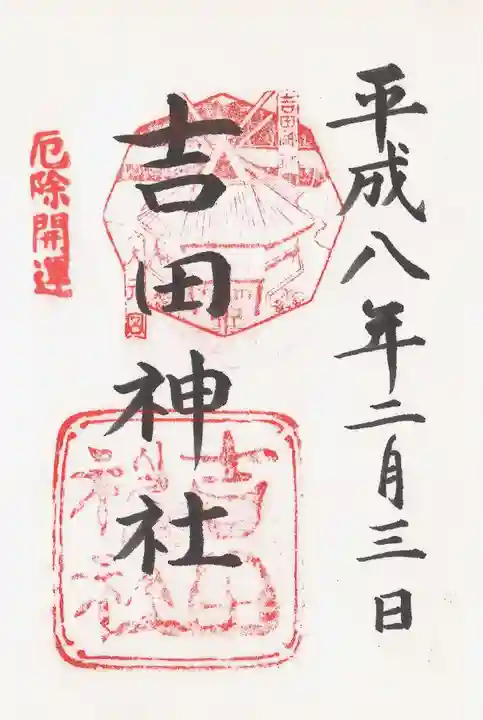 平成八年二月三日
吉田神社
厄除開運
吉田神社